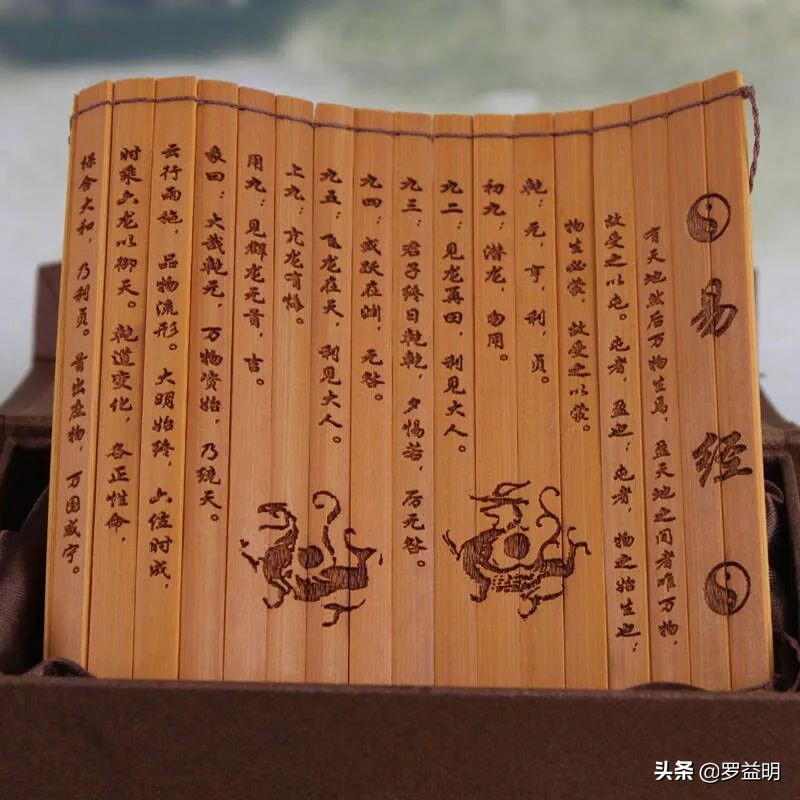 易经
有天地然后万物生焉，盈天地之间者唯万物，
故受之以屯。屯者，盈也；屯者，物之始生也；
物生必蒙，故受之以蒙。
乾：元，亨，利，贞。
初九：潜龙，勿用。
九二：见龙再田，利见大人。
九三：君子终日乾乾，夕惕若，厉无咎。
九四：或跃在渊，无咎。
九五：飞龙在天，利见大人。
上九：亢龙有悔。
用九：见群龙无首，吉。
彖曰：大哉乾元，万物资始，乃统天。
云行雨施，品物流形。大明始终，六位时成，
时乘六龙以御天。乾道变化，各正性命，
保合大和，乃利贞。首出庶物，万国咸宁。
头条 @罗益明